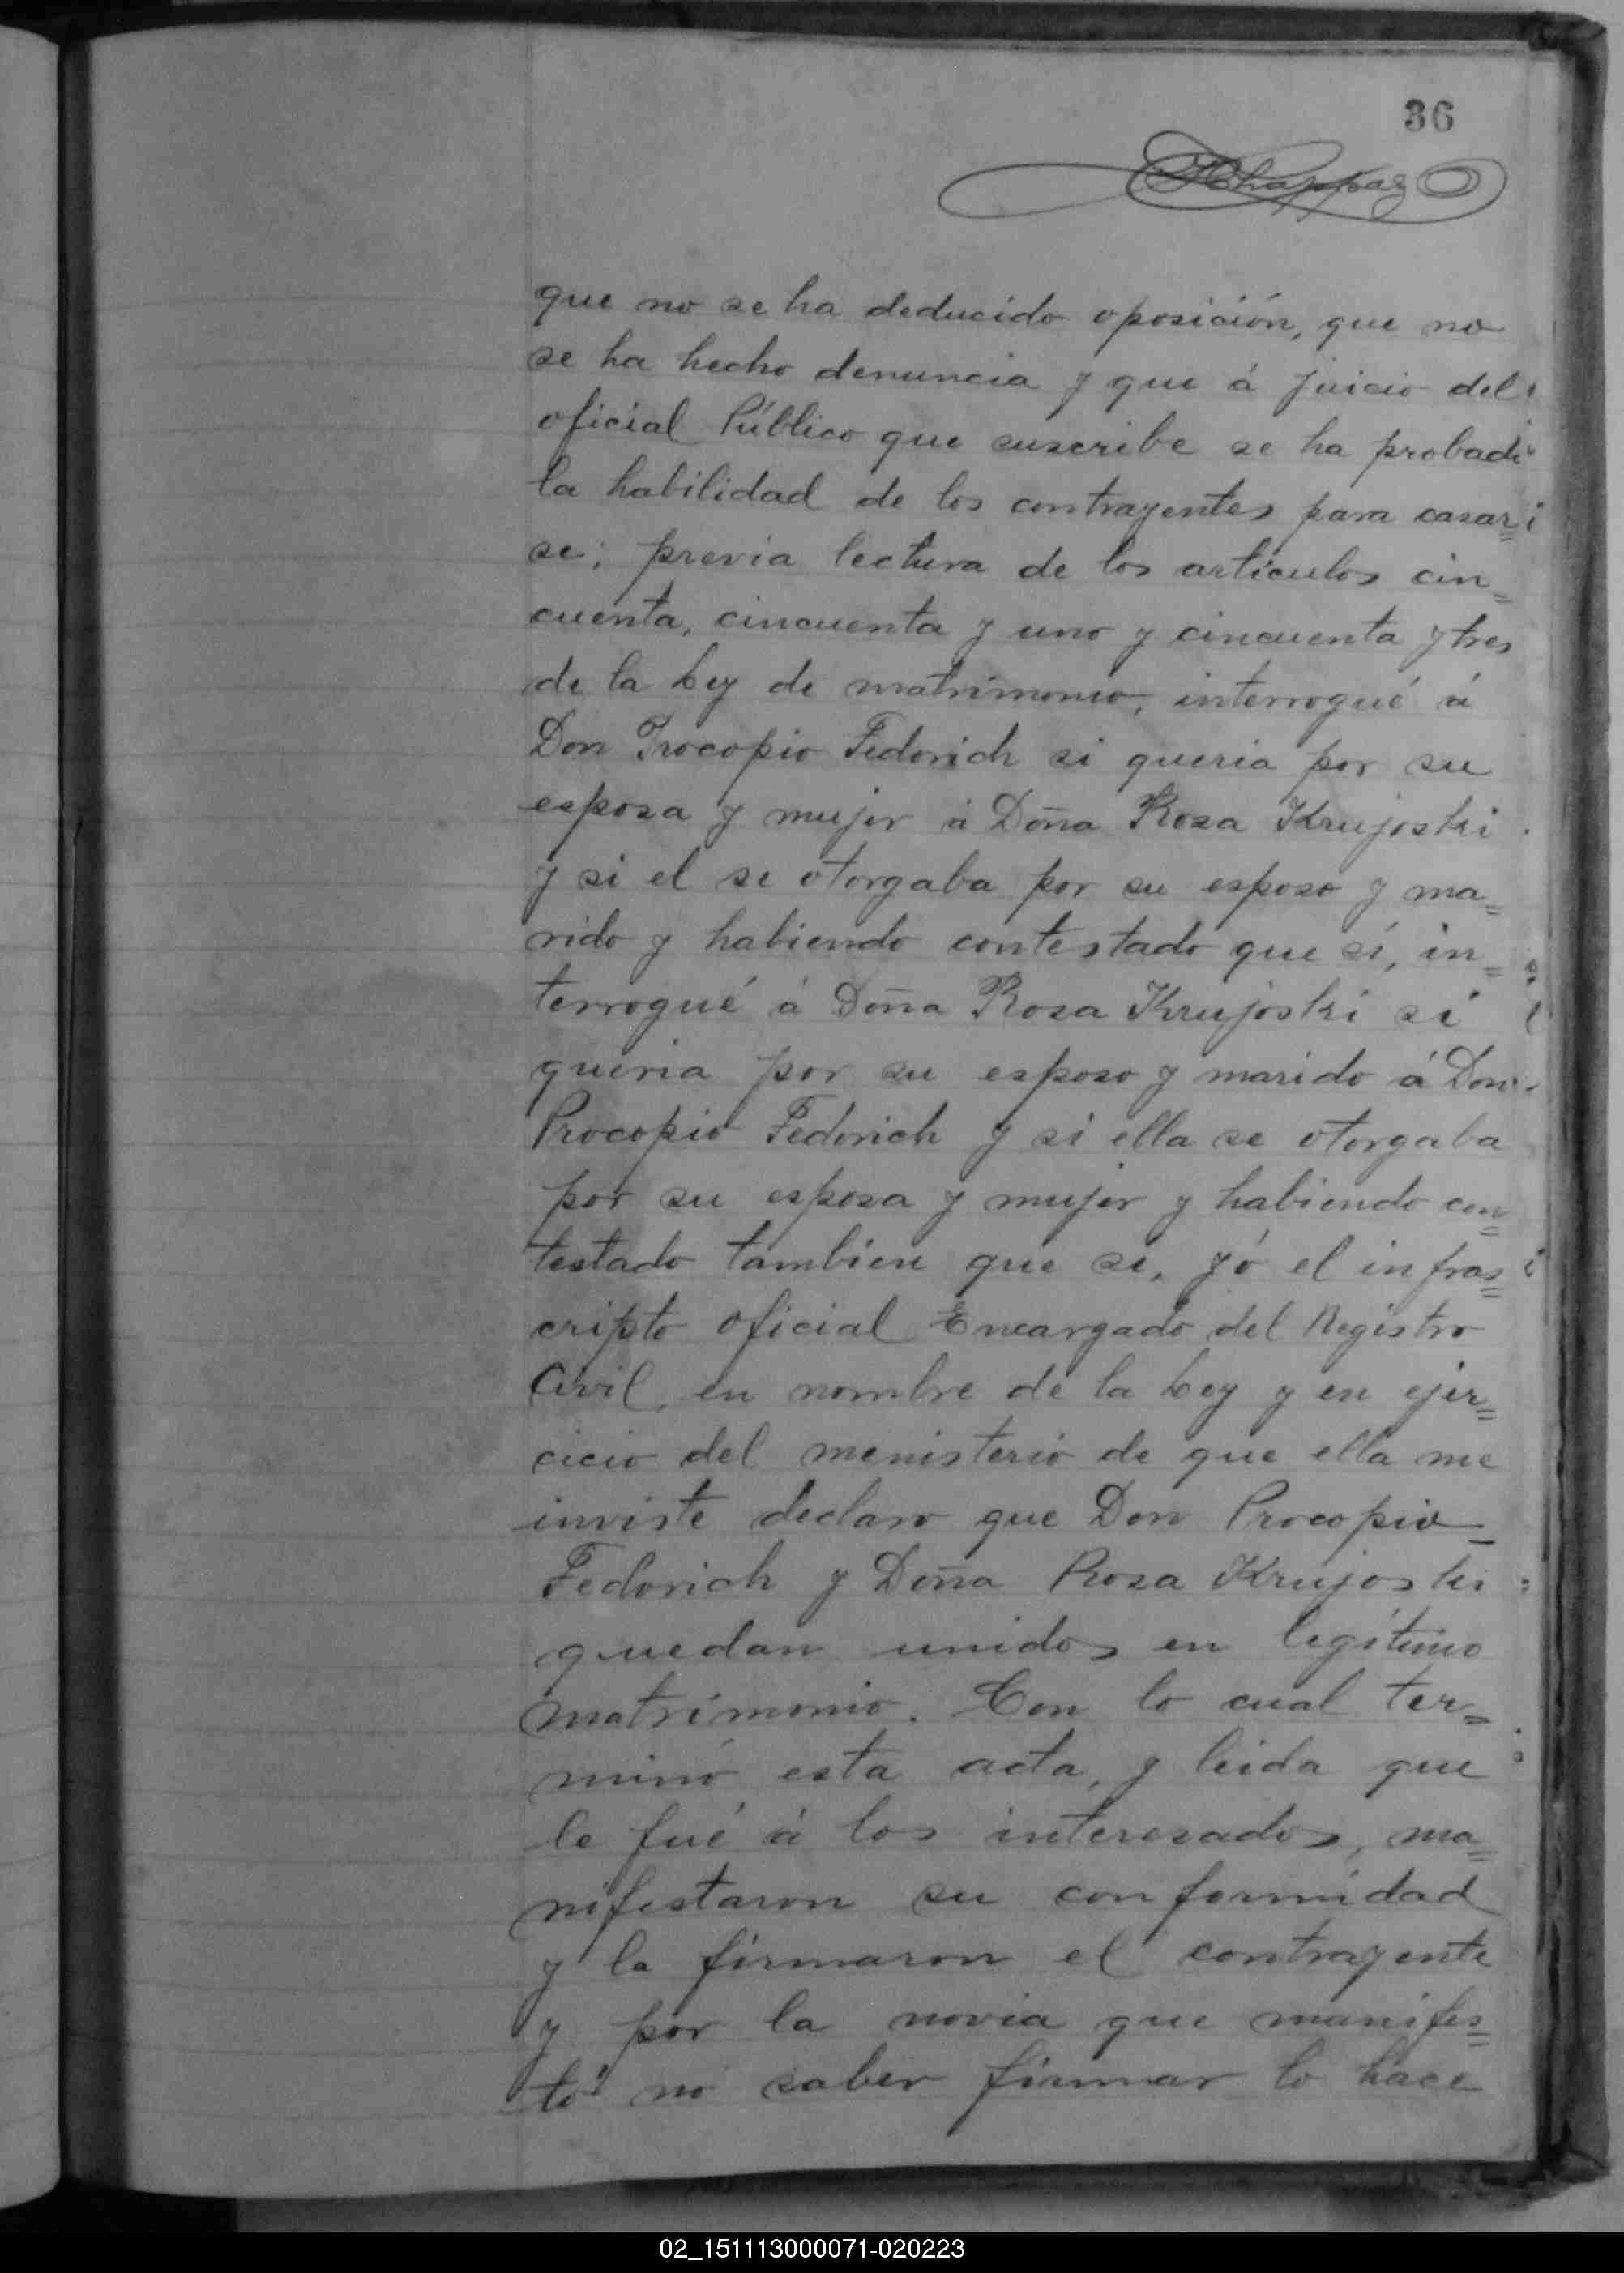 36
Chappaz
que no se ha deducido oposición, que no
se ha hecho denuncia y que á juicio del
oficial Público que suscribe se ha probado
la habilidad de los contrayentes para casar=
se; previa lectura de los artículos cin=
cuenta, cincuenta y uno y cincuenta y tres
de la Ley de matrimonio, interrogué á
Don Procopio Fedorich si queria por su
esposa y mujer á Doña Rosa Krujoski
y si el se otorgaba por su esposo y ma=
rido y habiendo contestado que sí, in=
terrogué á Doña Rosa Krujoski si
queria por su esposo y marido á Don
Procopio Fedorich y si ella se otorgaba
por su esposa y mujer y habiendo con=
testado tambien que si, yó el infras=
cripto oficial Encargado del Registro
Civil, en nombre de la Ley y en ejer=
cicio del menisterio de que ella me
inviste declaro que Don Procopio
Fedorich y Doña Rosa Krujoski
quedan unidos en legítimo
matrimonio. Con lo cual ter=
minó esta acta, y leida que
le fué á los interesados, ma=
nifestaron su conformidad
y la firmaron el contrayente
y por la novia que manifes=
tó no saber firmar lo hace
02_151113000071-020223